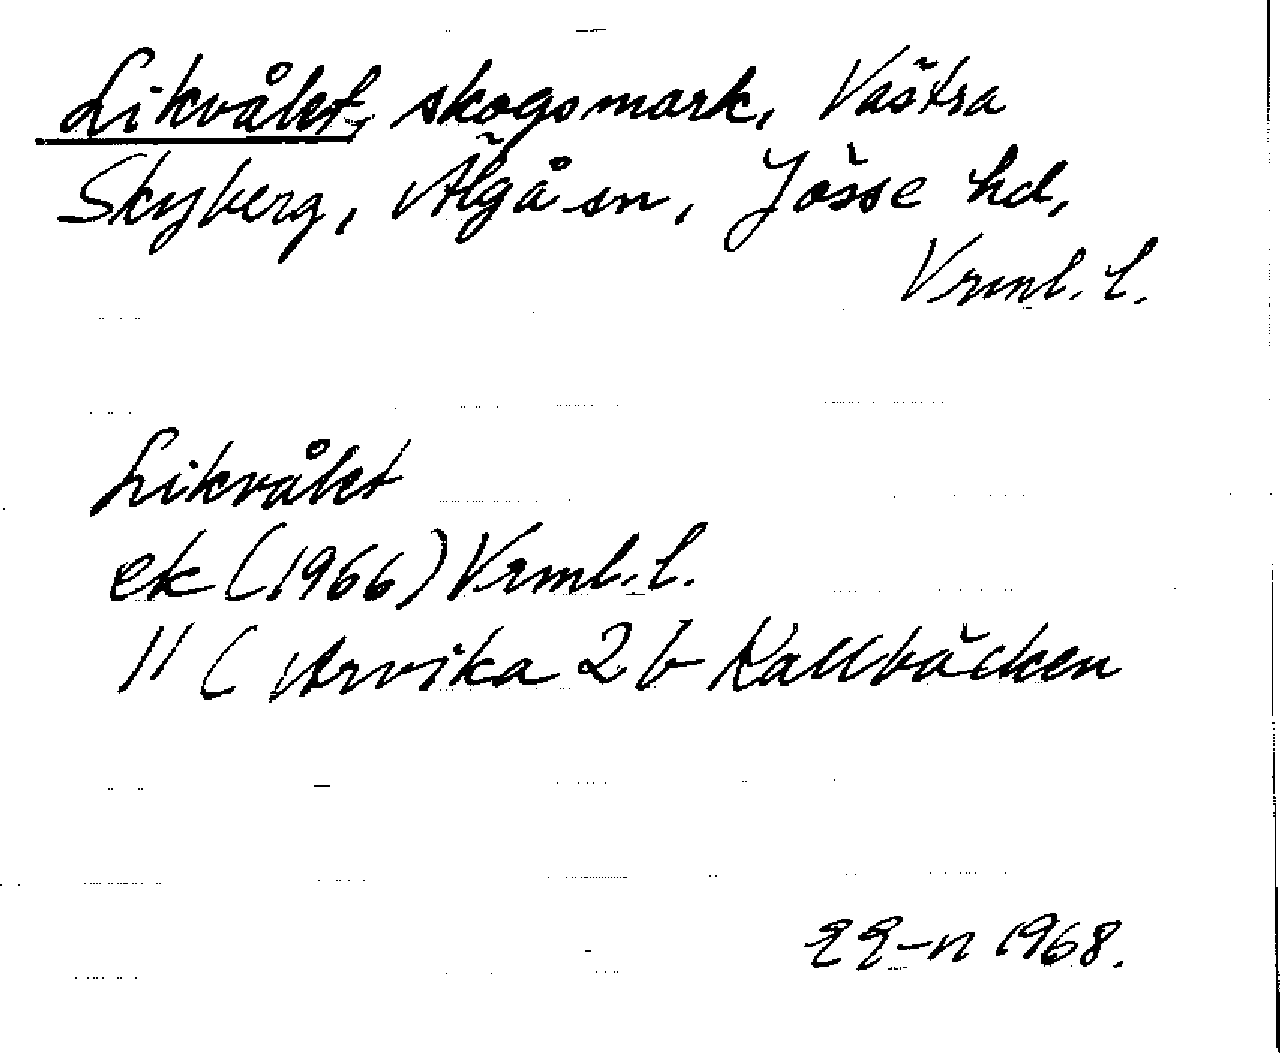 Likvålet, skogsmark, Västra
Skyberg, Älgå sn, Jösse hd,
Vrml. l.
Likvålet
ek (1966) Vrml. l.
11 C Arvika 2 b Kallbäcken
EE-n 1968.